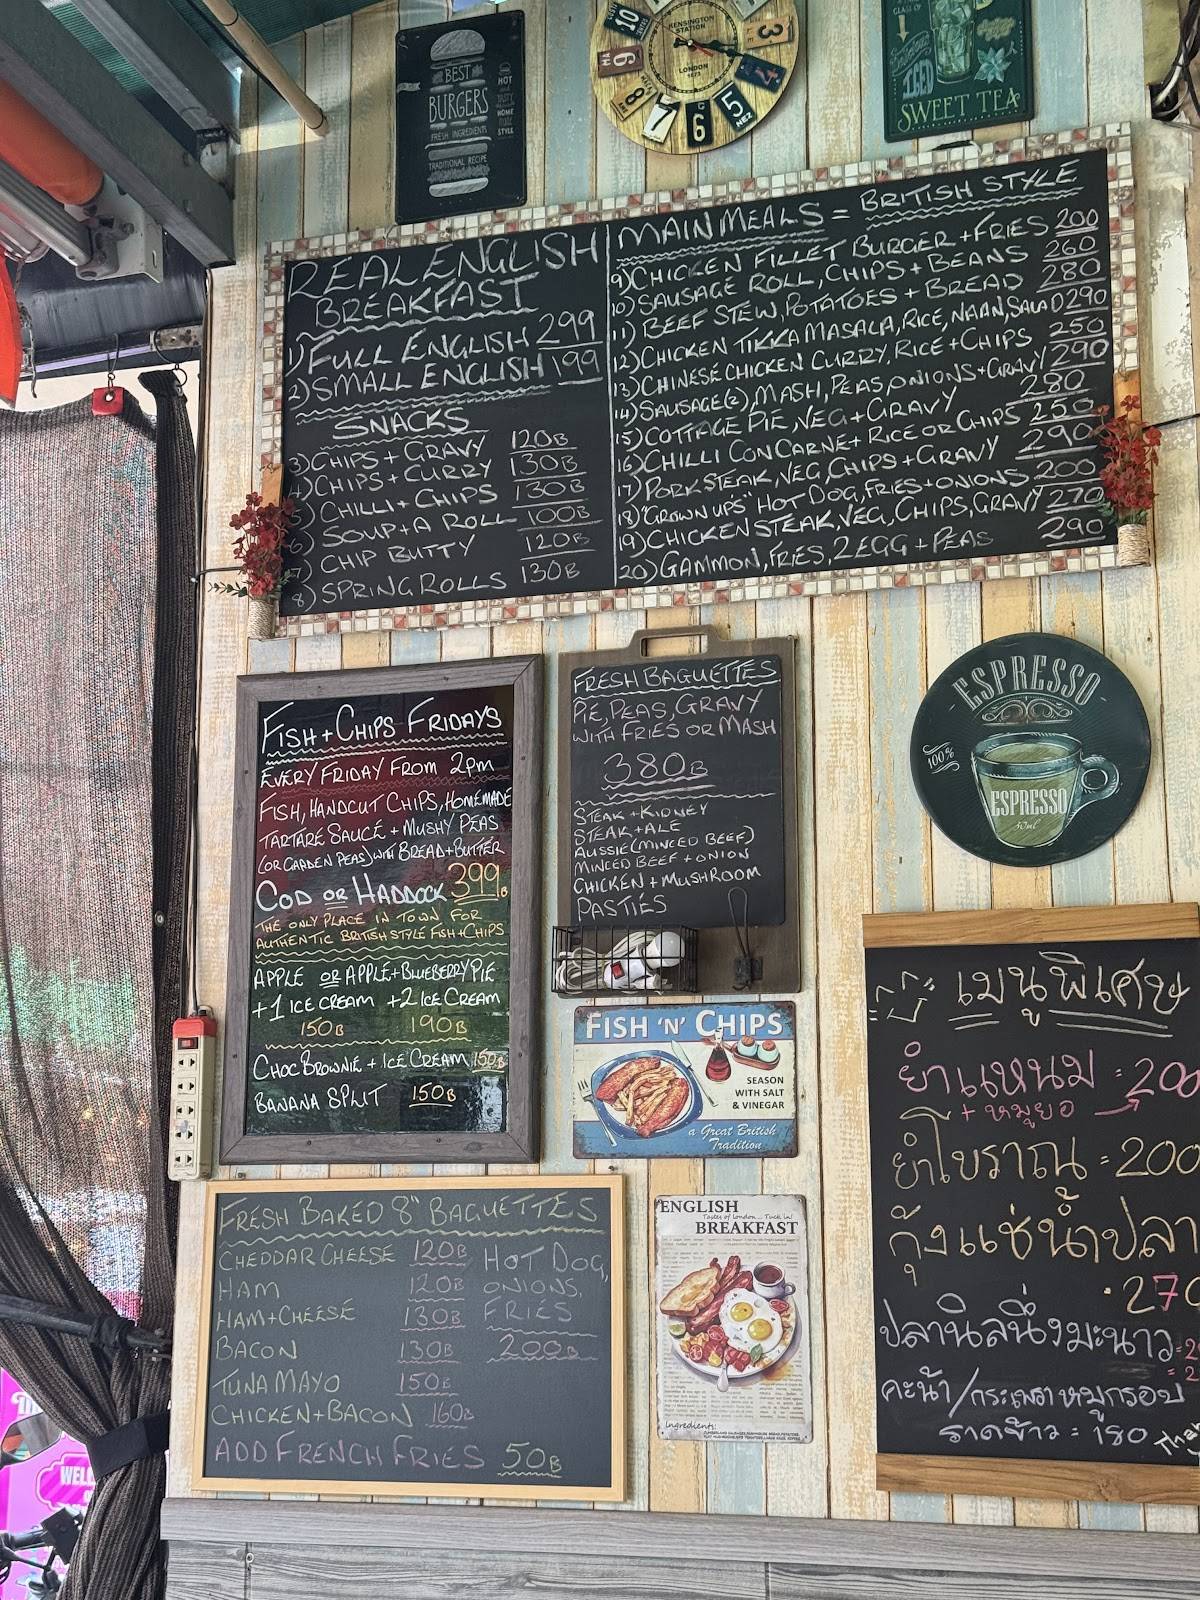 BEST
BURGERS
FRESH INGREDIENTS
TRADITIONAL RECIPE
HOT
HOME
STYLE
KENSINGTON
STATION
LONDON
10
9
8
7
6
5
4
3
ICED
SWEET TEA
REAL ENGLISH
BREAKFAST
1) FULL ENGLISH 299
2) SMALL ENGLISH 199
SNACKS
3) CHIPS + GRAVY 120B
4) CHIPS + CURRY 130B
5) CHILLI + CHIPS 130B
6) SOUP + A ROLL 100B
7) CHIP BUTTY 120B
8) SPRING ROLLS 130B
MAIN MEALS = BRITISH STYLE
9) CHICKEN FILLET BURGER + FRIES 200
10) SAUSAGE ROLL, CHIPS + BEANS 260
11) BEEF STEW, POTATOES + BREAD 280
12) CHICKEN TIKKA MASALA, RICE, NAAN, SALAD 290
13) CHINESE CHICKEN CURRY, RICE + CHIPS 250
14) SAUSAGE (2), MASH, PEAS, ONIONS + GRAVY 290
15) COTTAGE PIE, VEG + GRAVY 280
16) CHILLI CON CARNE + RICE OR CHIPS 250
17) PORK STEAK, VEG, CHIPS + GRAVY 290
18) "GROWN UPS" HOT DOG, FRIES + ONIONS 200
19) CHICKEN STEAK, VEG, CHIPS, GRAVY 270
20) GAMMON, FRIES, 2 EGG + PEAS 290
FISH + CHIPS FRIDAYS
EVERY FRIDAY FROM 2PM
FISH, HANDCUT CHIPS, HOMEMADE
TARTARE SAUCE + MUSHY PEAS
(OR GARDEN PEAS) WITH BREAD + BUTTER
COD OR HADDOCK 399B
THE ONLY PLACE IN TOWN FOR
AUTHENTIC BRITISH STYLE FISH + CHIPS
APPLE OR APPLE + BLUEBERRY PIE
+ 1 ICE CREAM + 2 ICE CREAM
150B 190B
CHOC BROWNIE + ICE CREAM 150B
BANANA SPLIT 150B
FRESH BAGUETTES
PIE, PEAS, GRAVY
WITH FRIES OR MASH
380B
STEAK + KIDNEY
STEAK + ALE
AUSSIE (MINCED BEEF)
MINCED BEEF + ONION
CHICKEN + MUSHROOM
PASTIES
ESPRESSO
100%
ESPRESSO
50ml
FISH 'N' CHIPS
SEASON
WITH SALT
& VINEGAR
a Great British
Tradition
เมนูพิเศษ
ยำแหนม = 200
+ หมูยอ
ยำโบราณ = 200
กุ้งแช่น้ำปลา
270
ปลานิลนึ่งมะนาว
คะน้า/กระเพราหมูกรอบ
ราดข้าว = 150
FRESH BAKED 8" BAGUETTES
CHEDDAR CHEESE 120B
HAM 120B
HAM + CHEESE 130B
BACON 130B
TUNA MAYO 150B
CHICKEN + BACON 160B
HOT DOG,
ONIONS,
FRIES
200B
ADD FRENCH FRIES 50B
ENGLISH
Tastes of London... Tuck in!
BREAKFAST
Ingredients:
WEL